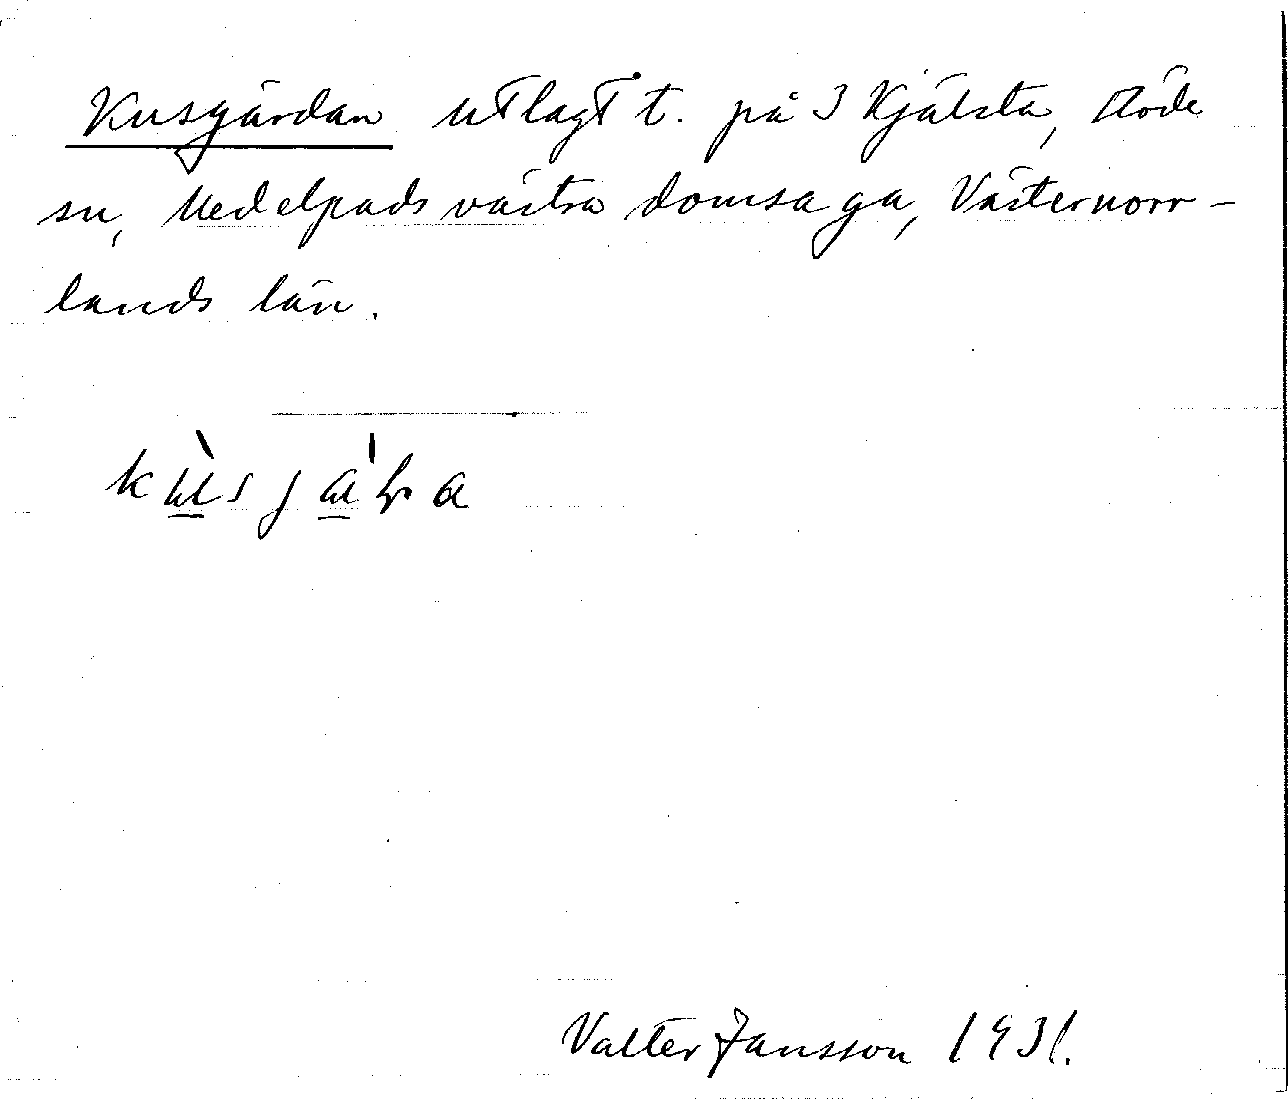 Kusgärdan utlagt t. på 3 Kjälsta, Stöde
sn, Medelpads västra domsaga, Västernorr-
lands län.
Valter Jansson 1931.